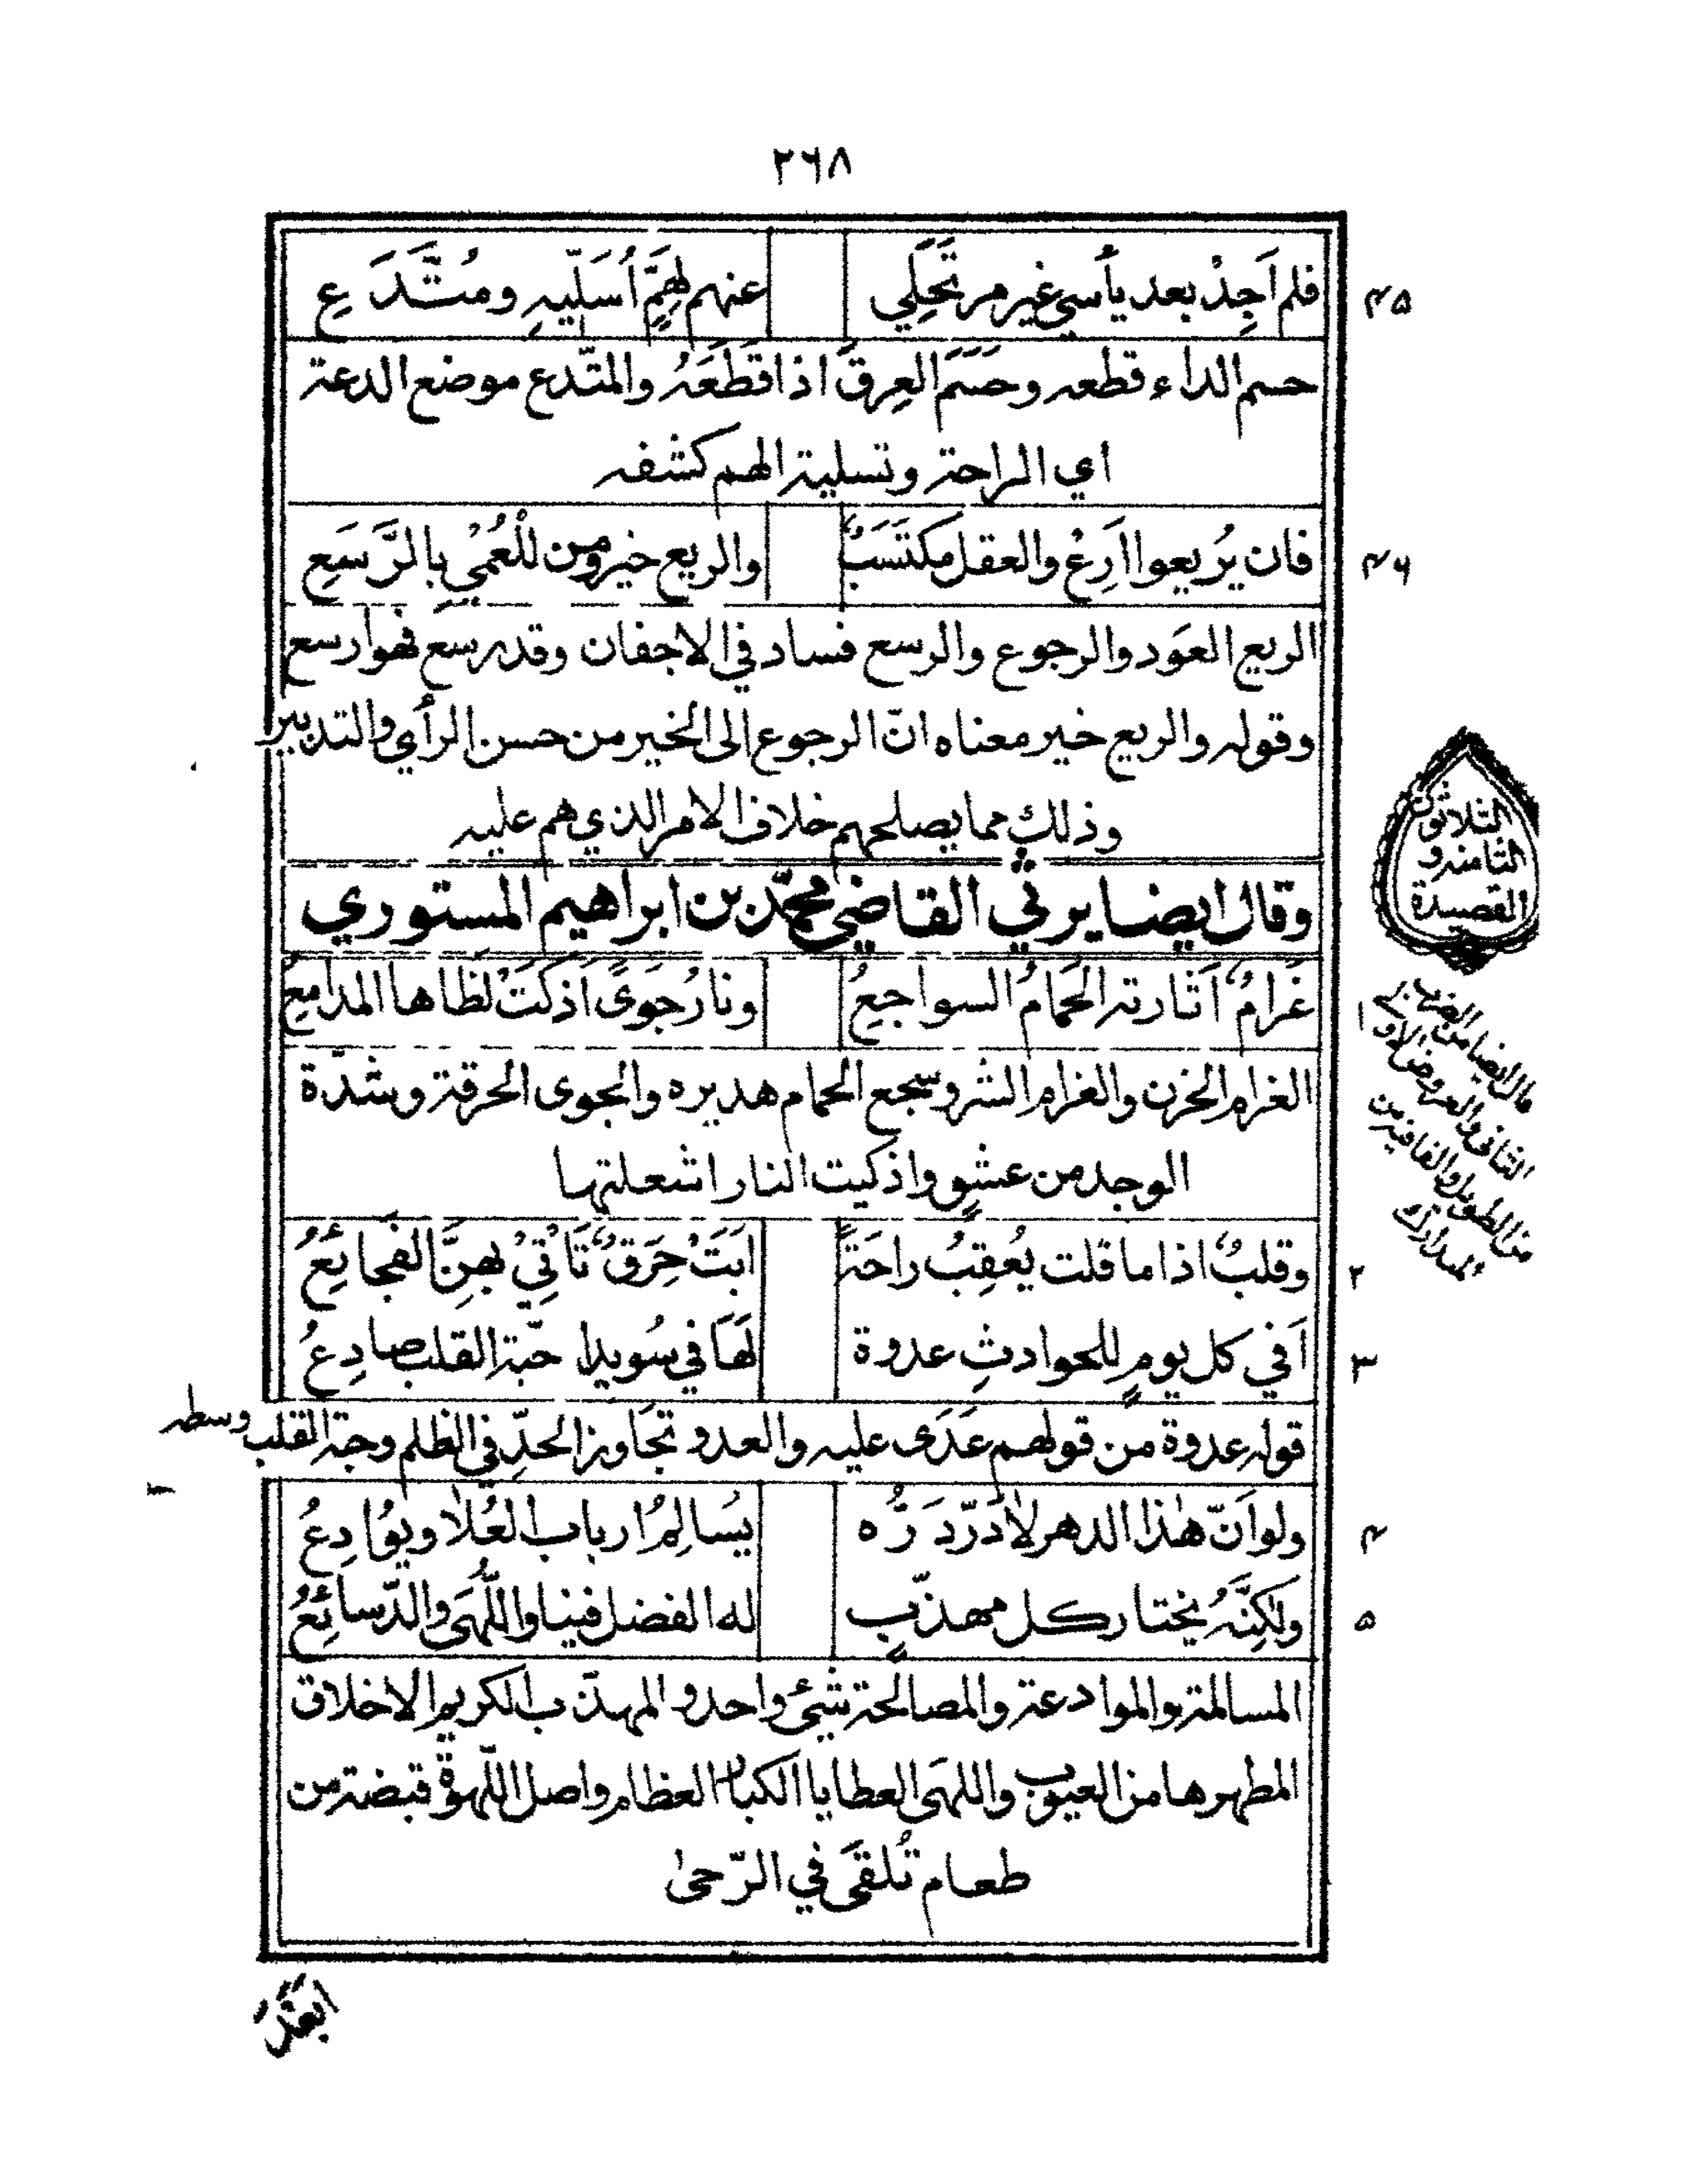 ٢٦٨
٤٥ فلم اَجِدْ بعد يأسي غير مرتَحَلِي عنهم لِهَمٍّ اُسَلّيهِ ومُتَّدَعِ
حسم الداء قطعه وحَسَمَ العِرقَ اذا قَطَعَهُ والمتّدع موضع الدعة
اي الراحة وتسلية الهم كشفه
٤٦ فان يُريعوا اَرِعْ والعقل مكتَسَبٌ والريع خير ومن للْعُمْيِ بالرَّسَعِ
الريع العَود والرجوع والرسع فساد في الاجفان وقد رسع فهو ارسع
وقوله والريع خير معناه انّ الرجوع الى الخير من حسن الرأي والتدبير
وذلك مما يصلحهم خلاف الامر الذي هم عليه
وقال ايضا يرثي القاضي محمّد بن ابراهيم المستوري
القصيدة
الثامنة و
الثلاثون
غَرامٌ اَثارته الحَمامُ السواجعُ ونارُ جَوىً اَذكَتْ لَظاها المدامعُ
قال ايضا من الضرب
الثاني والعروض الاولى
من الطويل والقافية من
المتدارك
الغرام الحزن والغرام الشر وسجع الحمام هديره والجوى الحرقة وشدّة
الوجد من عشقٍ واذكيت النار اشعلتها
٢ وقلبٌ اذا ما قلت يُعقِبُ راحَةً اَبَتْ حِرَقٌ تَاْتِيْ بهِنَّ الفَجائِعُ
٣ اَفي كل يومٍ للحوادثِ عدوة لَها في سُويدا حبّة القلب صادِعُ
قوله عدوة من قولهم عَدَى عليه والعدو تجَاوز الحدِّ في الظلم وحبة القلب وسطه
٤ ولو اَنّ هٰذا الدهر لا دَرّ دَرُّه يُسالِمُ ارباب العُلا ويوُادِعُ
٥ ولٰكِنَّهُ يختار كل مهذّبٍ له الفضل فينا واللُّهَى والدّسائِعُ
المسالمة والموادعة والمصالحة شيئ واحد والمهذّب الكريم الاخلاق
المطهرها من العيوب واللهى العطايا الكبار العظام واصل اللّهوة قبضة من
طعام تُلقَى في الرّحىٰ